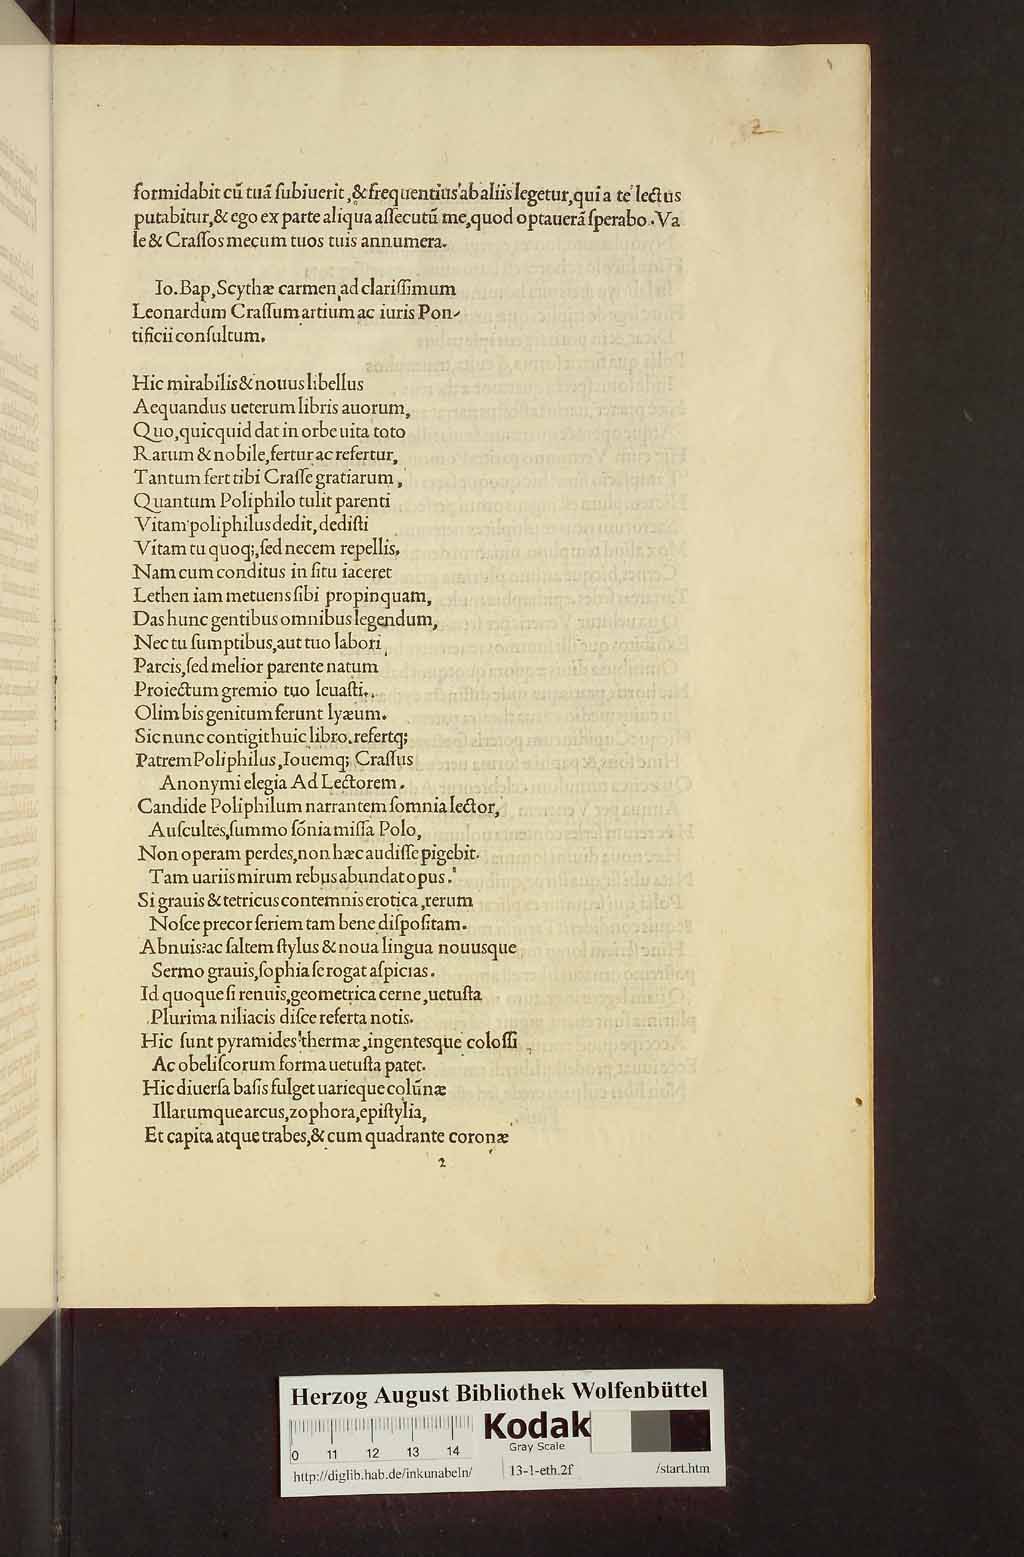 2
formidabit cũ tuã ſubiuerit, & frequentius ab aliis legetur, qui a te lectus
putabitur, & ego ex parte aliqua aſſecutũ me, quod optauerã ſperabo. Va
le & Craſſos mecum tuos tuis annumera.
Io. Bap, Scythæ carmen, ad clariſſimum
Leonardum Craſſum artium ac iuris Pon-
tificii conſultum.
Hic mirabilis & nouus libellus
Aequandus ueterum libris auorum,
Quo, quicquid dat in orbe uita toto
Rarum & nobile, fertur ac refertur,
Tantum fert tibi Craſſe gratiarum,
Quantum Poliphilo tulit parenti
Vitam poliphilus dedit, dediſti
Vitam tu quoq;, ſed necem repellis,
Nam cum conditus in ſitu iaceret
Lethen iam metuens ſibi propinquam,
Das hunc gentibus omnibus legendum,
Nec tu ſumptibus, aut tuo labori
Parcis, ſed melior parente natum
Proiectum gremio tuo leuaſti.
Olim bis genitum ferunt lyæum.
Sic nunc contigit huic libro. refertq;
Patrem Poliphilus, Iouemq; Craſſus
Anonymi elegia Ad Lectorem.
Candide Poliphilum narrantem ſomnia lector,
Auſcultes, ſummo ſõnia miſſa Polo,
Non operam perdes, non hæc audiſſe pigebit.
Tam uariis mirum rebus abundat opus.
Si grauis & tetricus contemnis erotica, rerum
Noſce precor ſeriem tam bene diſpoſitam.
Abnuis? ac ſaltem ſtylus & noua lingua nouusque
Sermo grauis, ſophia ſe rogat aſpicias.
Id quoque ſi renuis, geometrica cerne, uetuſta
Plurima niliacis diſce referta notis.
Hic ſunt pyramides thermæ, ingentesque coloſſi
Ac obeliſcorum forma uetuſta patet.
Hic diuerſa baſis fulget uarieque colũnæ
Illarumque arcus, zophora, epiſtylia,
Et capita atque trabes, & cum quadrante coronæ
2
Herzog August Bibliothek Wolfenbüttel
Kodak
Gray Scale
0 11 12 13 14
http://diglib.hab.de/inkunabeln/ 13-1-eth.2f /start.htm